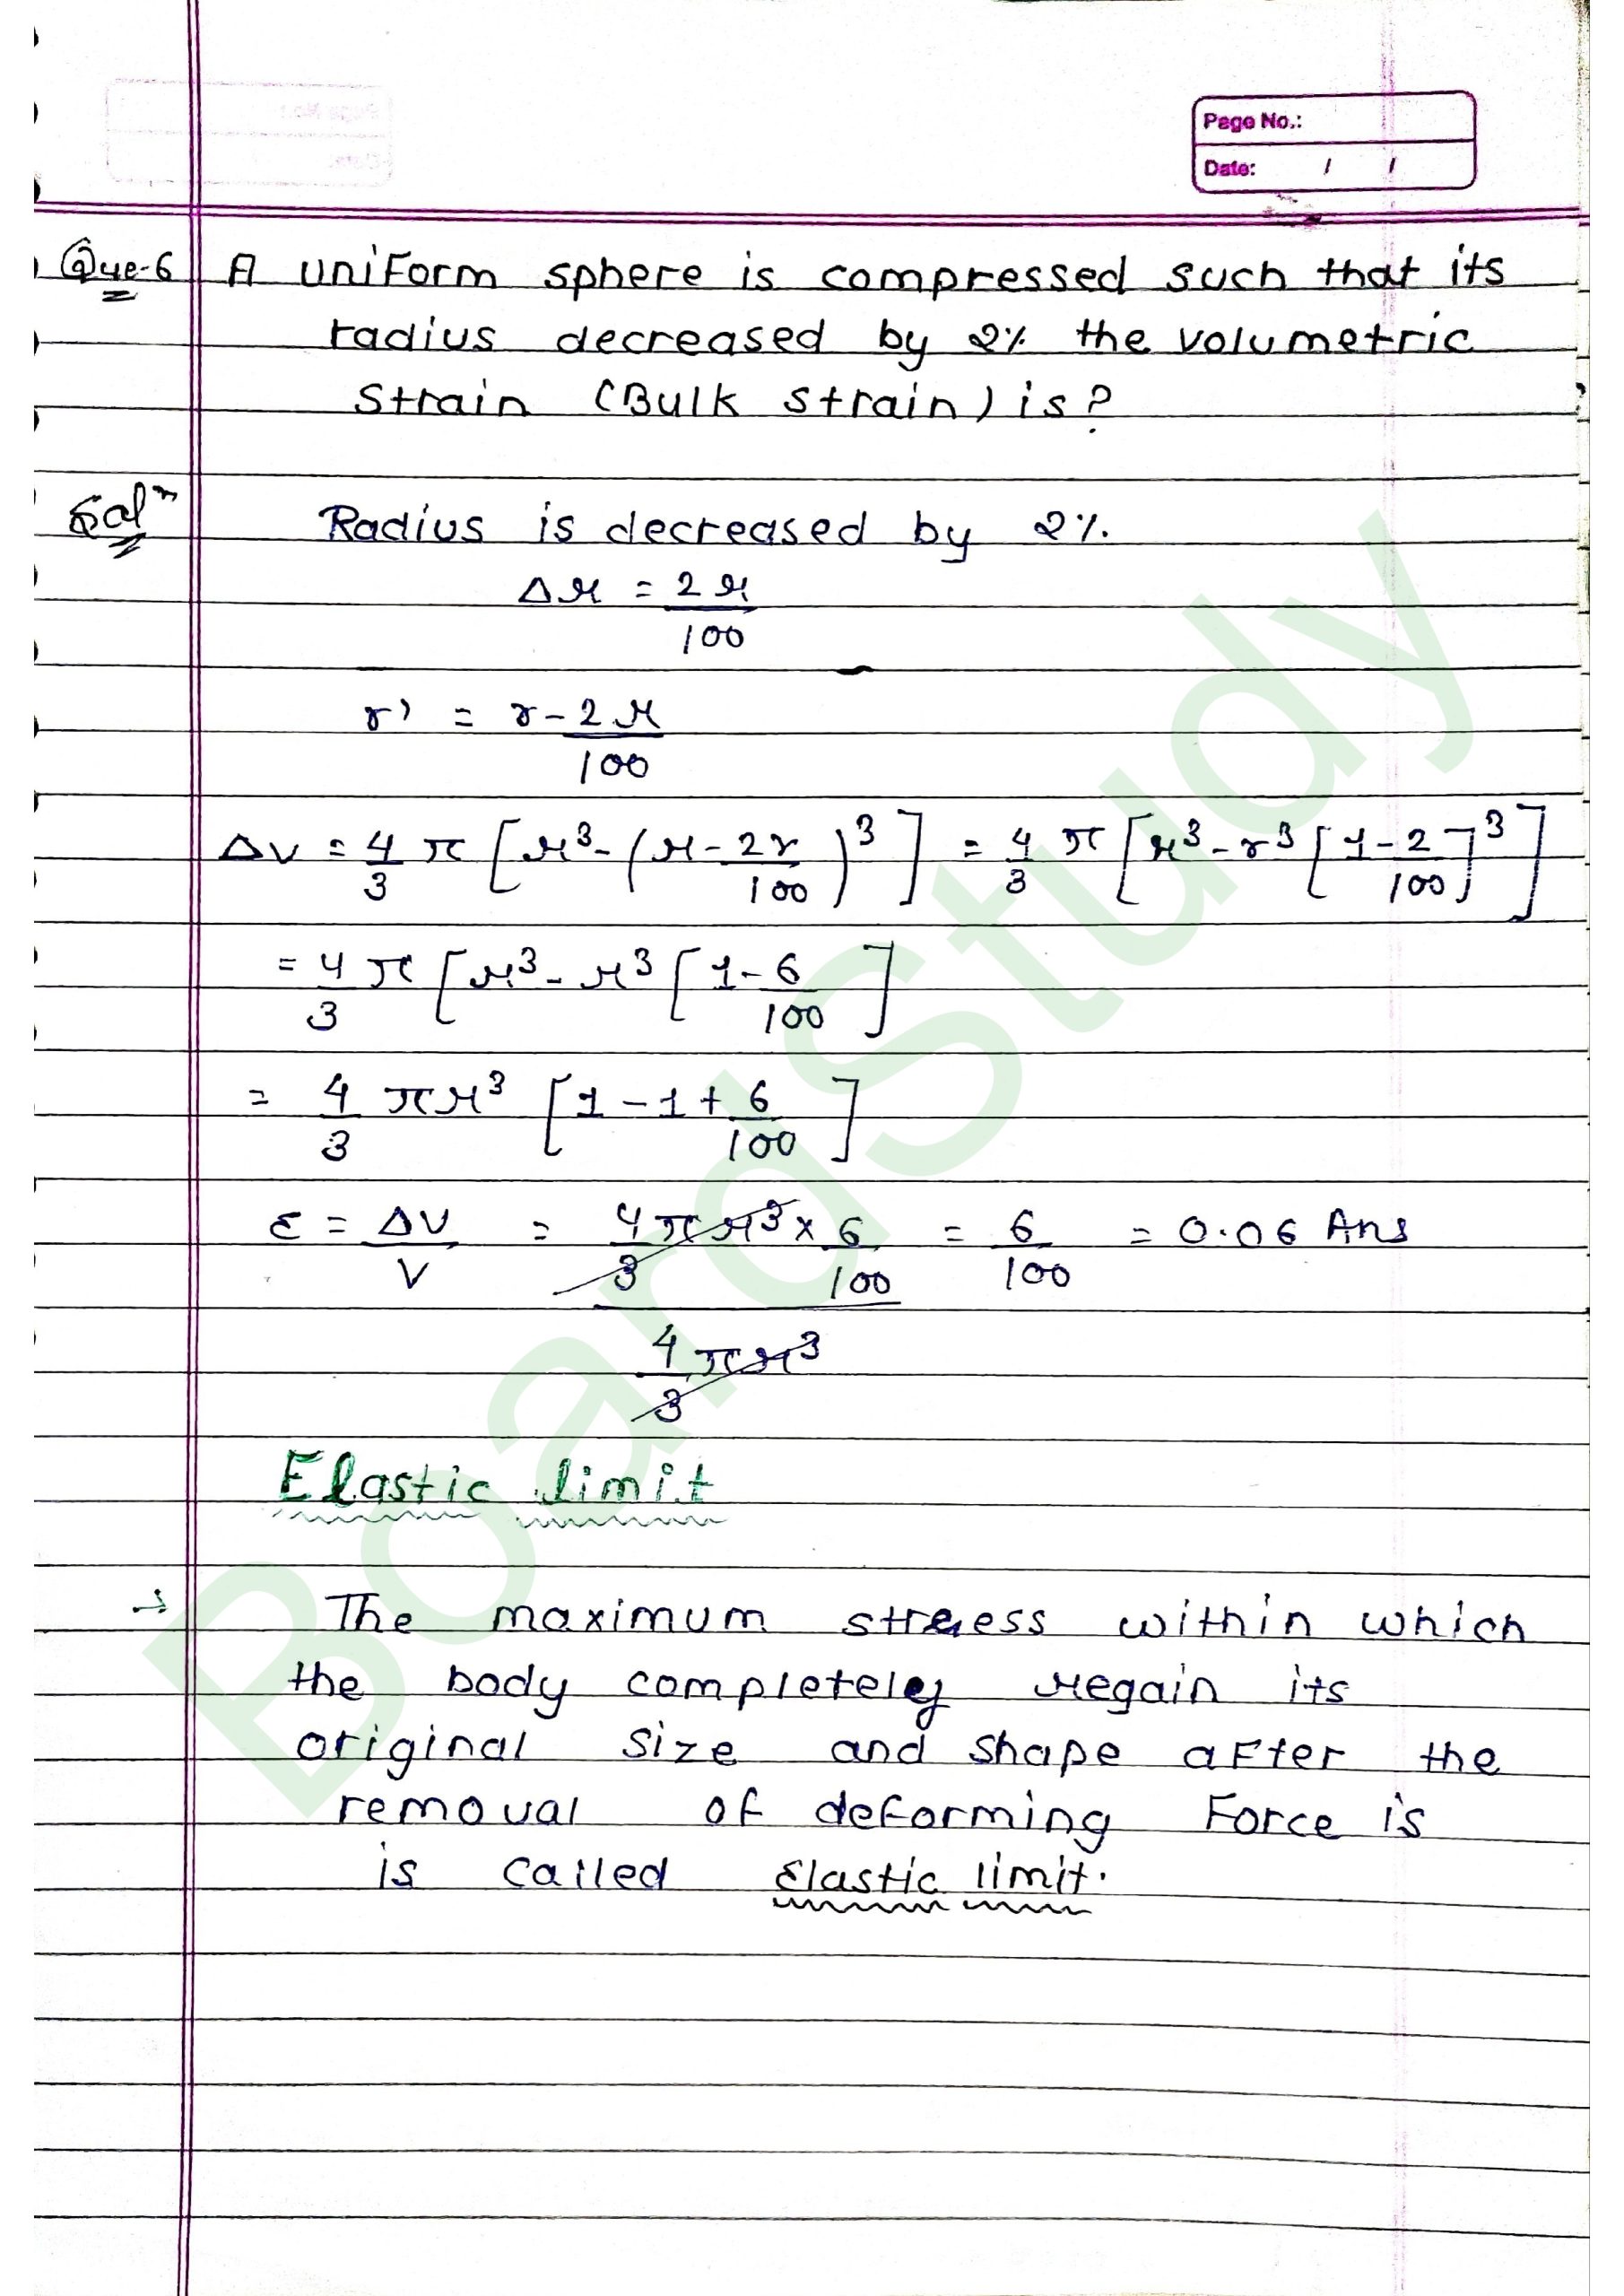 Page No.:
Date: / /
Que-6 A uniform sphere is compressed such that its
radius decreased by 2% the volumetric
Strain (Bulk strain) is?
Solⁿ Radius is decreased by 2%.
Δr = 2r/100
r' = r - 2r/100
ΔV = 4/3 π [r³ - (r - 2r/100)³] = 4/3 π [r³ - r³ [1 - 2/100]³]
= 4/3 π [r³ - r³ [1 - 6/100]
= 4/3 πr³ [1 - 1 + 6/100]
ε = ΔV/V = 4/3 πr³ × 6/100 / 4/3 πr³ = 6/100 = 0.06 Ans
Elastic limit
→ The maximum stress within which
the body completely regain its
original size and shape after the
removal of deforming Force is
is called Elastic limit.
BoardStudy